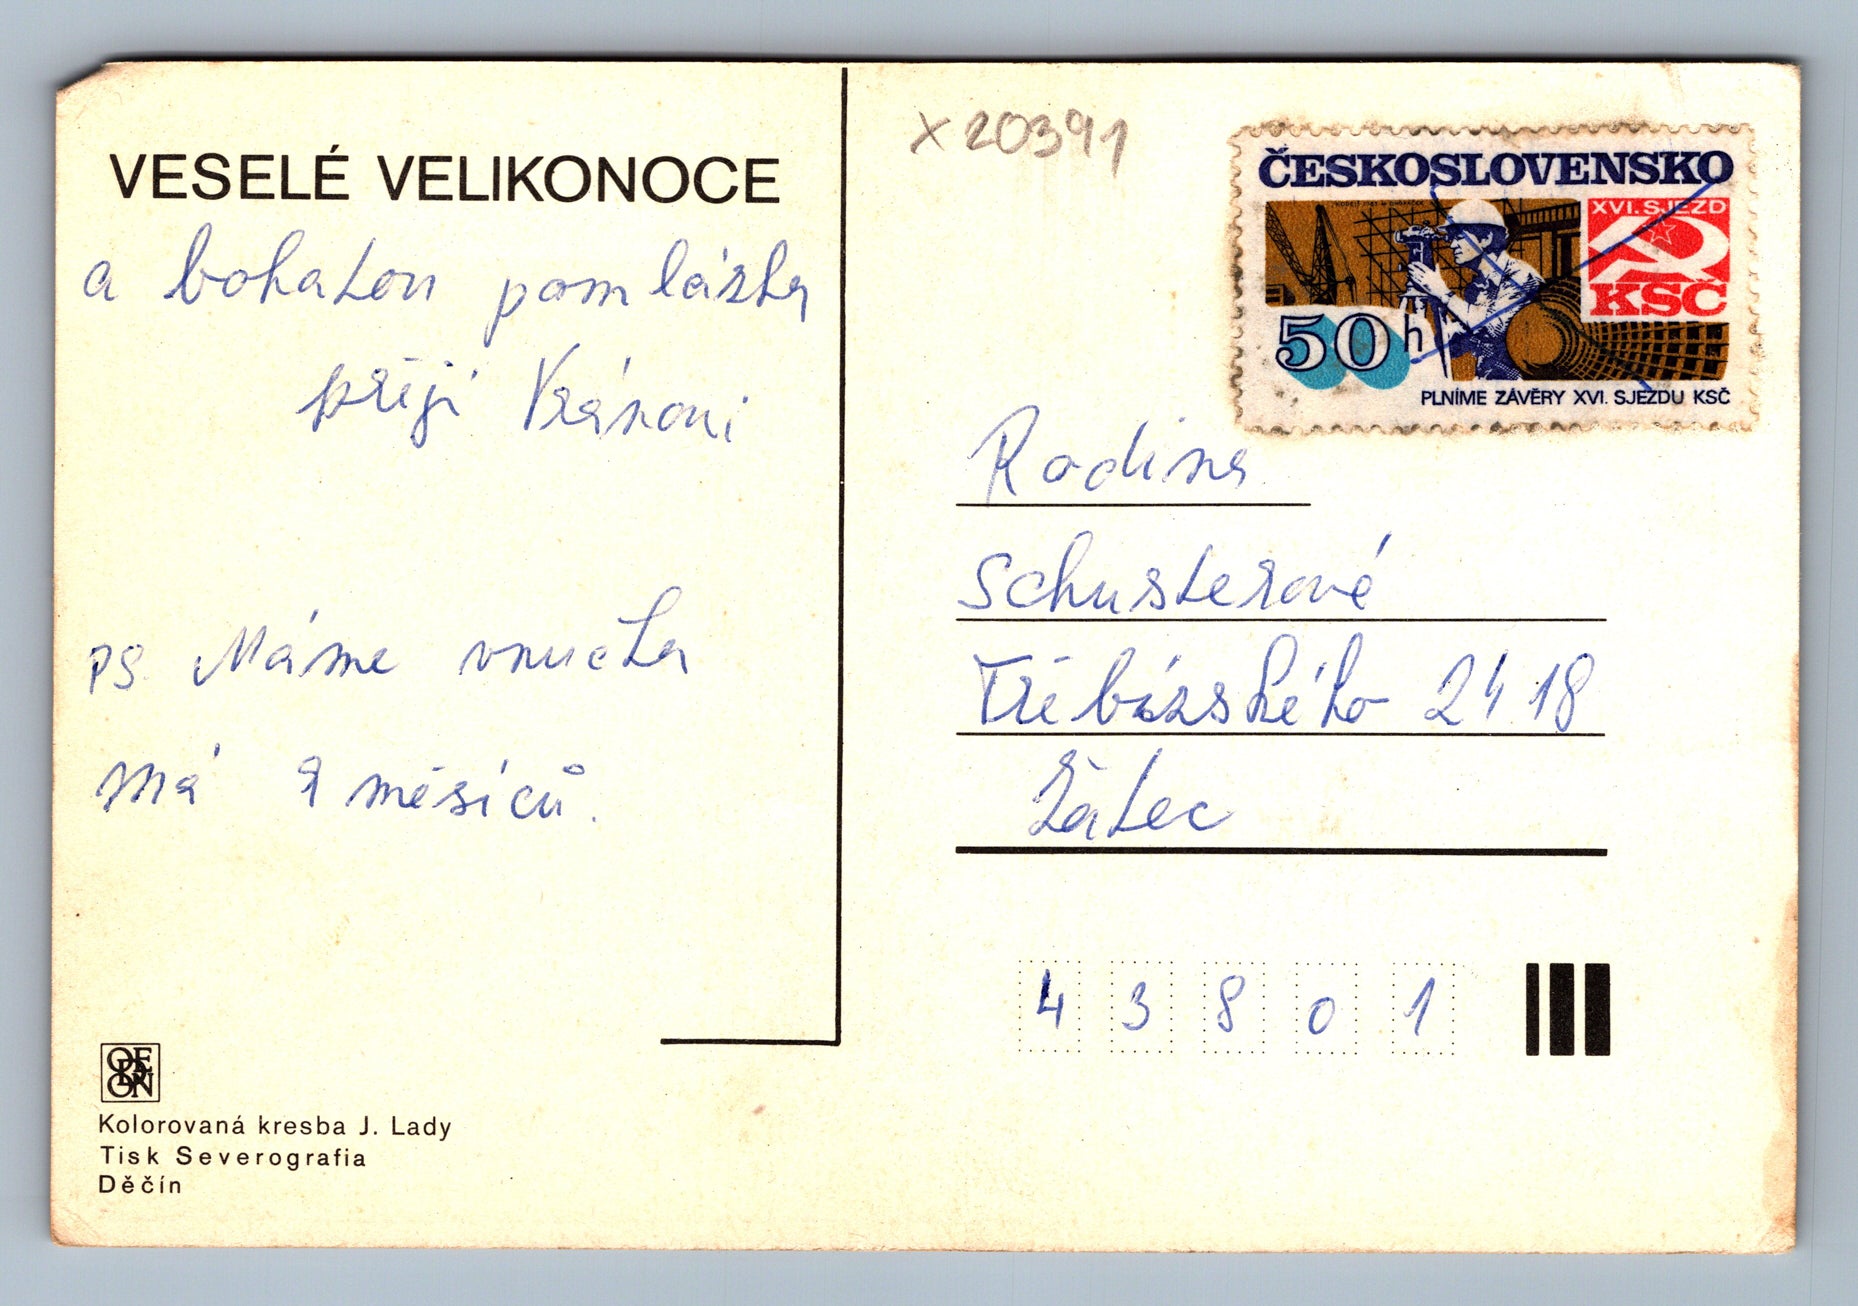 VESELÉ VELIKONOCE
a bohatou pomlázku
přejí Vránovi
ps. Máme vnučku
má 9 měsíců.
ODEON
Kolorovaná kresba J. Lady
Tisk Severografia
Děčín
x 20391
ČESKOSLOVENSKO
XVI. SJEZD
KSČ
50 h
PLNÍME ZÁVĚRY XVI. SJEZDU KSČ
Rodina
Schusterové
Třebízského 2418
Žatec
4 3 8 0 1